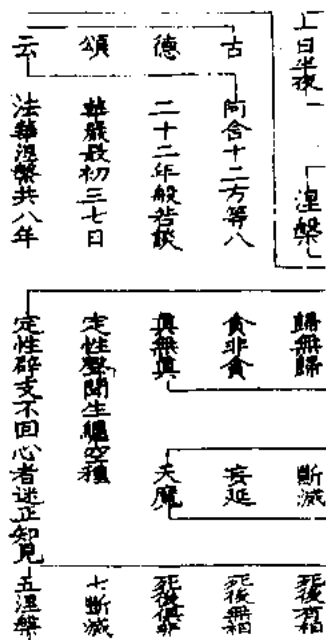 上日半夜
涅槃
古德頌云
阿含十二方等八
二十二年般若談
華嚴最初三七日
法華涅槃共八年
歸無歸
貪非貪
眞無眞
定性聲聞生纏空種
定性辟支不回心者迷正知見
斷滅
妄延
天魔
死後有相
死後無相
死後俱非
七斷滅
五涅槃